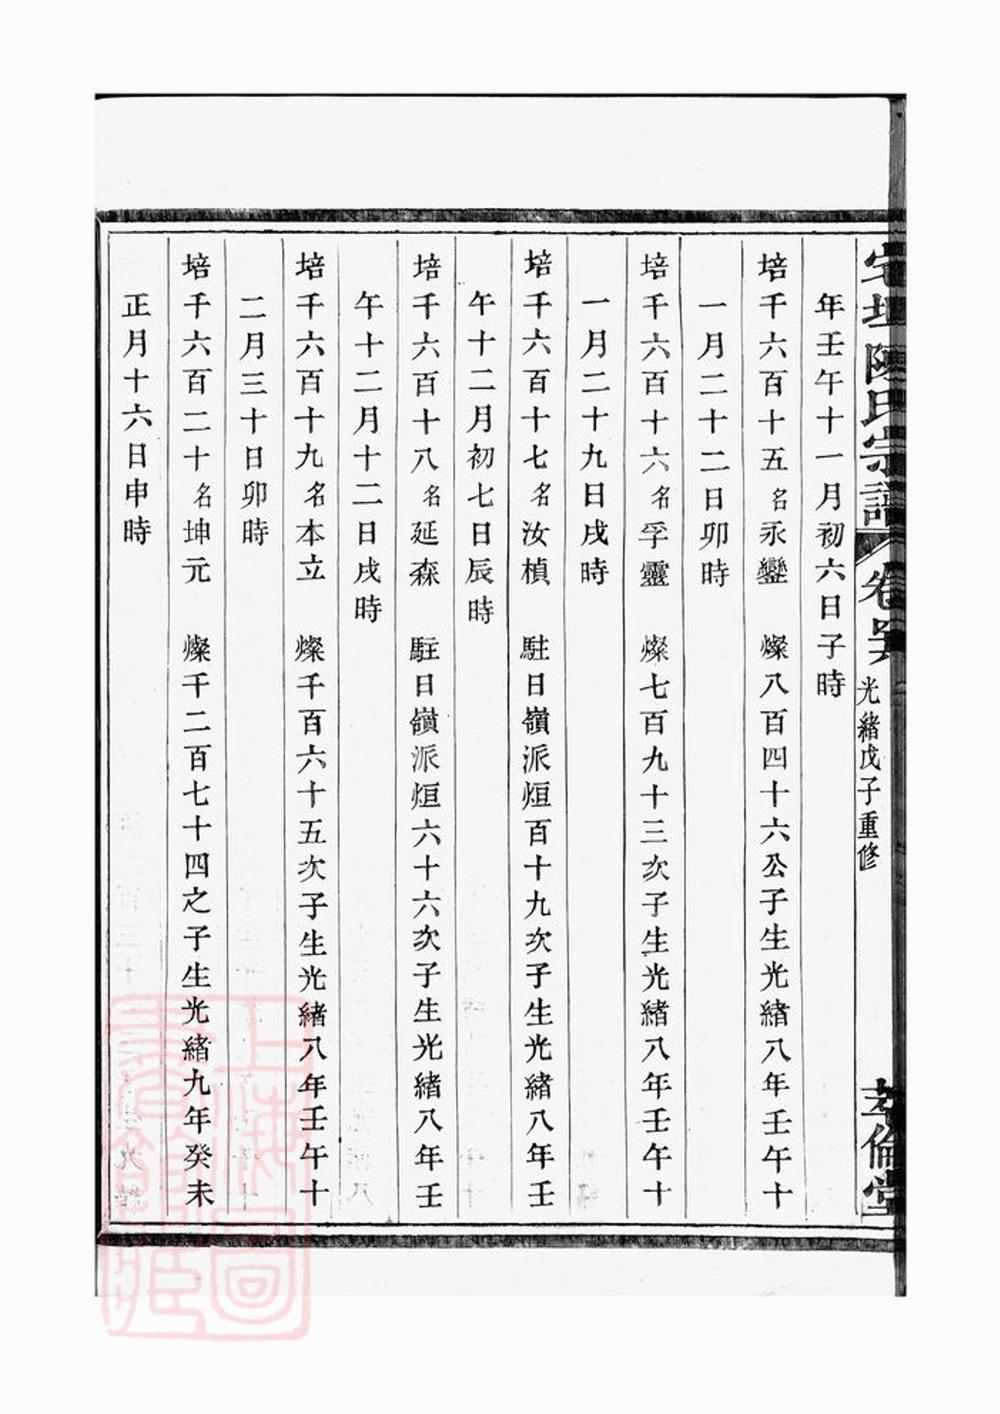 宅埠陳氏宗譜 卷 光緒戊子重修 孝倫堂
年壬午十一月初六日子時
培千六百十五名永鑾 燦八百四十六公子生光緒八年壬午十
一月二十二日卯時
培千六百十六名孚靈 燦七百九十三次子生光緒八年壬午十
一月二十九日戌時
培千六百十七名汝楨 駐日嶺派烜百十九次子生光緒八年壬
午十二月初七日辰時
培千六百十八名延森 駐日嶺派烜六十六次子生光緒八年壬
午十二月十二日戌時
培千六百十九名本立 燦千百六十五次子生光緒八年壬午十
二月三十日卯時
培千六百二十名坤元 燦千二百七十四之子生光緒九年癸未
正月十六日申時
上海圖書館藏